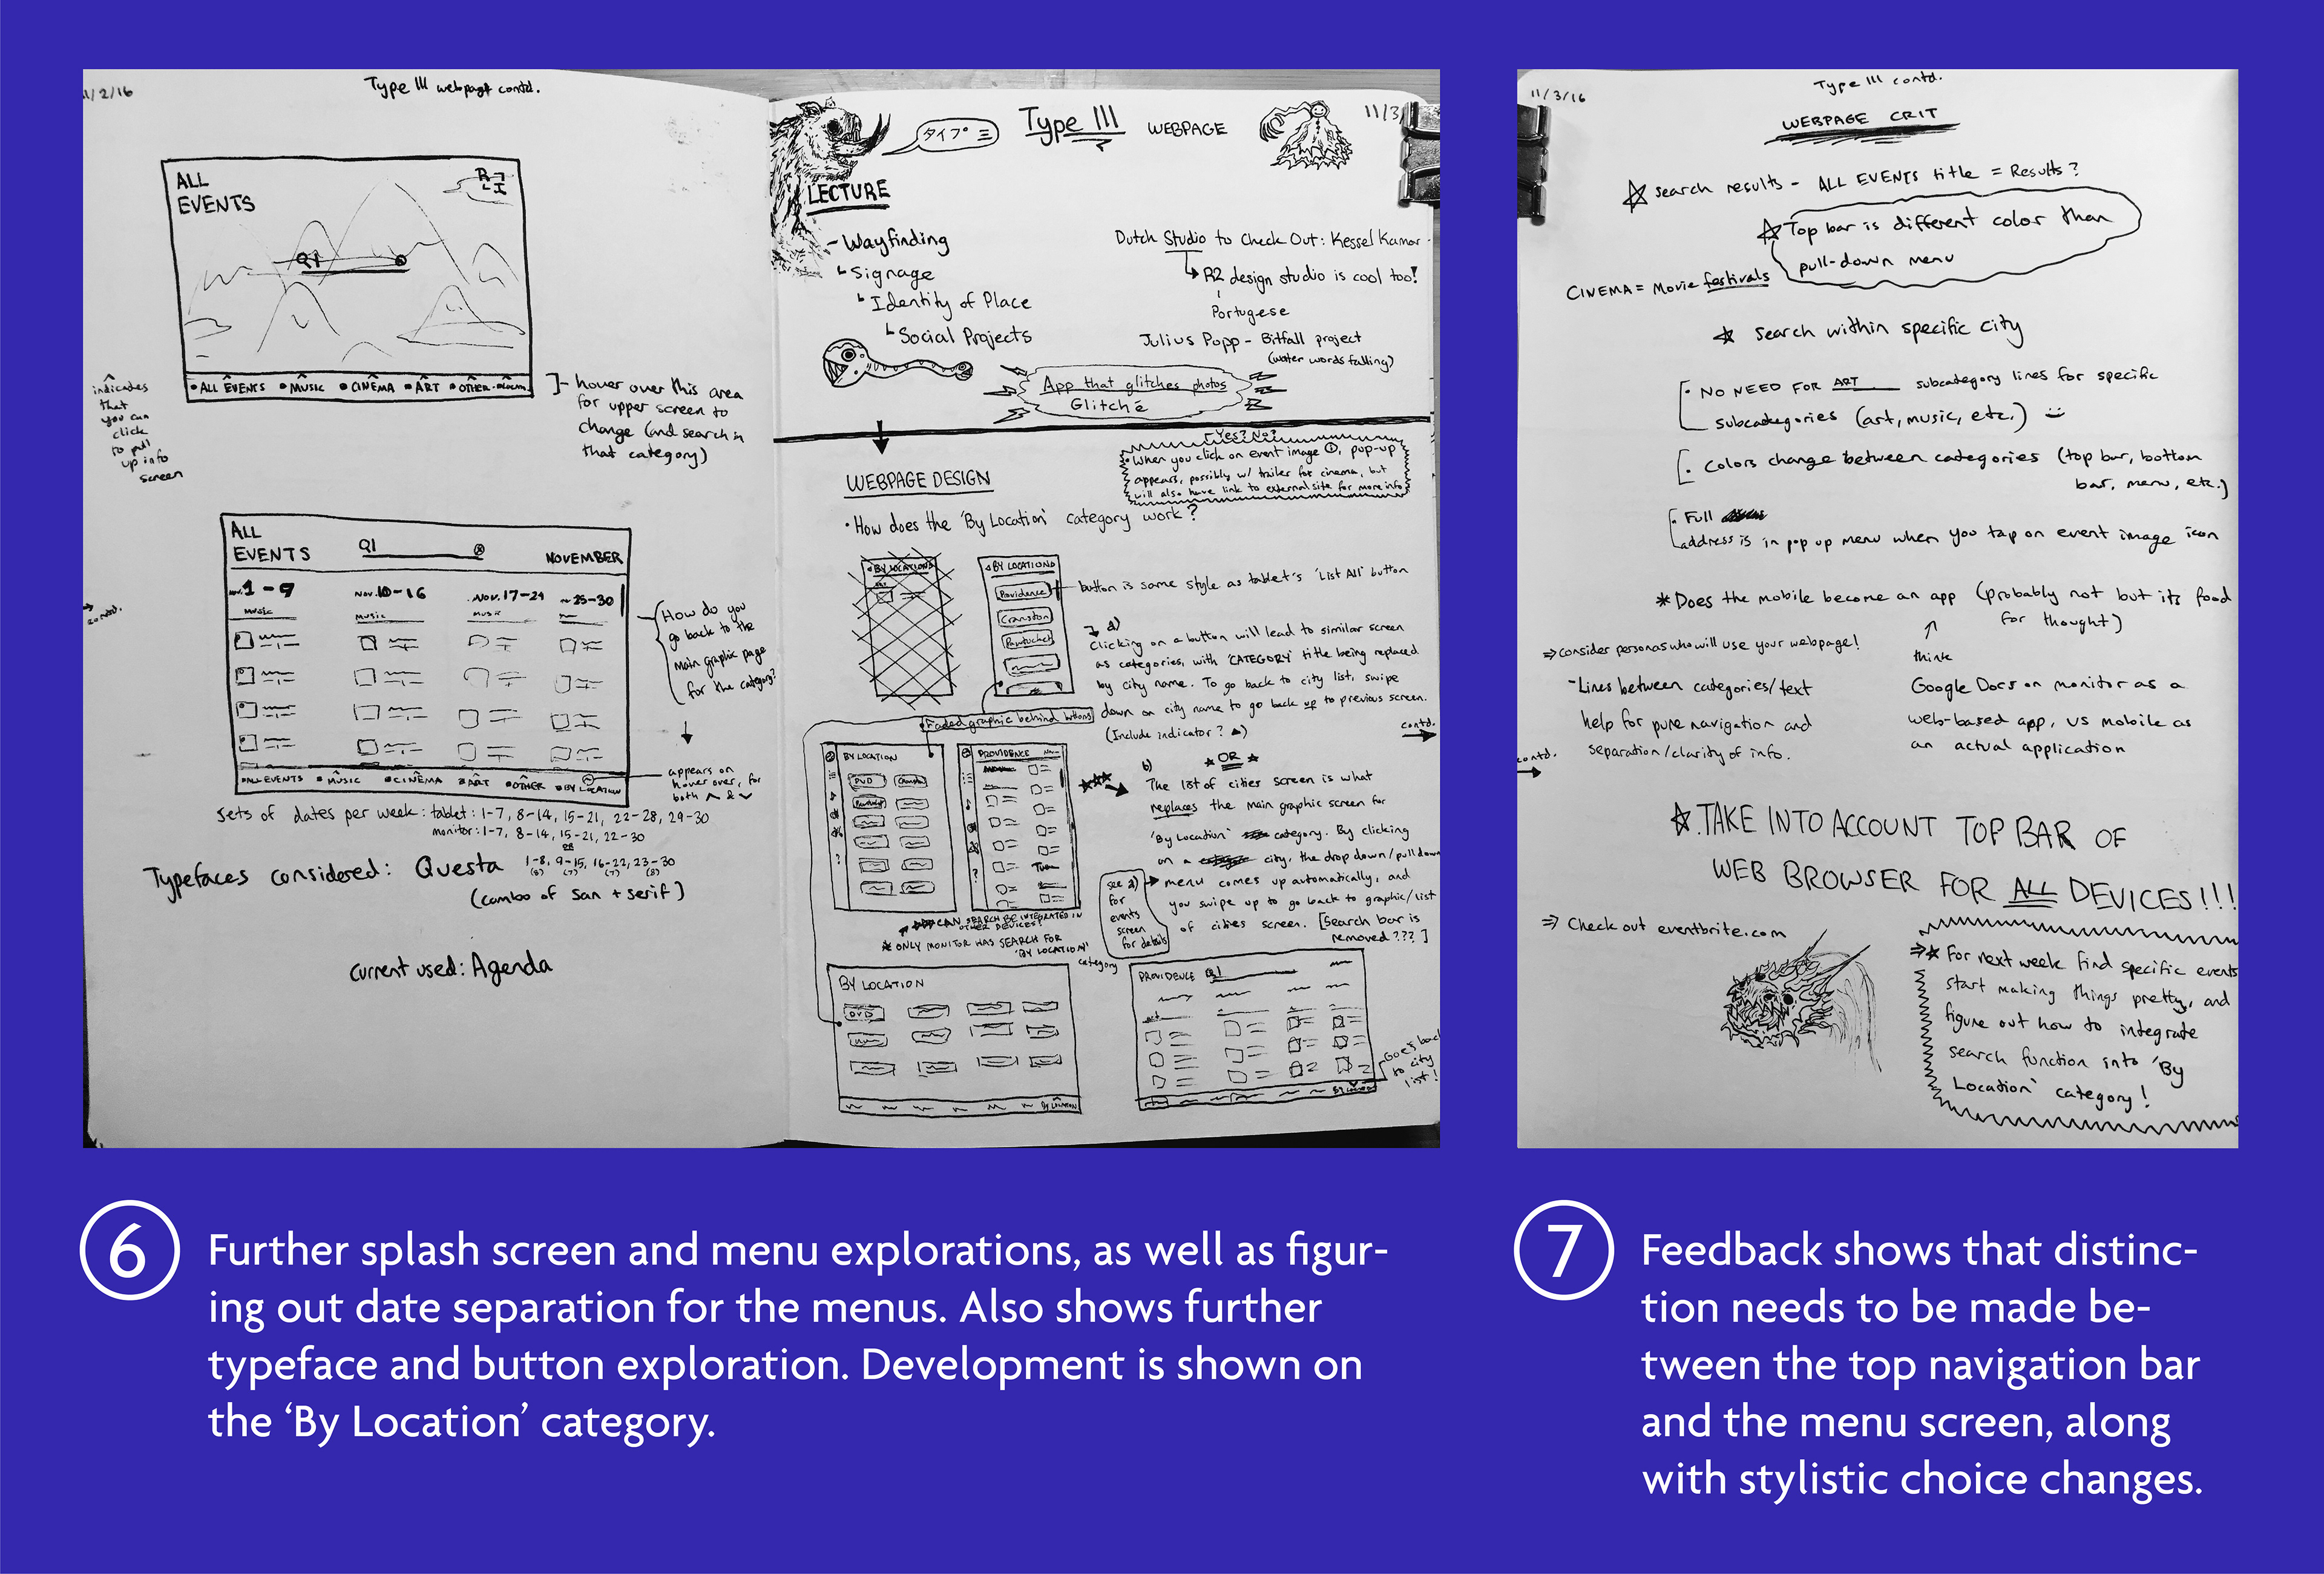 11/2/16
Type III webpage contd.
ALL
EVENTS
Q1
• ALL EVENTS • MUSIC • CINEMA • ART • OTHER
indicates
that
you can
click
to pull
up info
screen
hover over this area
for upper screen to
change (and search in
that category)
ALL
EVENTS
Q1
NOVEMBER
Nov. 1-9
Nov. 10-16
Nov. 17-24
25-30
MUSIC
MUSIC
MUSIC
contd.
• ALL EVENTS • MUSIC • CINEMA • ART • OTHER • BY LOCATION
How do you
go back to the
main graphic page
for the category?
appears on
hover over, for
both ^ & v
Sets of dates per week: tablet: 1-7, 8-14, 15-21, 22-28, 29-30
monitor: 1-7, 8-14, 15-21, 22-30
OR
1-8, 9-15, 16-22, 23-30
(8) (7) (7) (8)
Typefaces considered: Questa
(combo of San + serif)
current used: Agenda
タイプ 三
Type III WEBPAGE
11/3
LECTURE
- Wayfinding
Signage
Identity of Place
Social Projects
Dutch Studio to Check Out: Kessel Kramer
R2 design studio is cool too!
Portugese
Julius Popp - Bitfall project
(water words falling)
App that glitches photos
Glitché
Yes? No?
• When you click on event image, pop-up
appears, possibly w/ trailer for cinema, but
will also have link to external site for more info
WEBPAGE DESIGN
• How does the 'By Location' category work?
BY LOCATIONS
BY LOCATIONS
Providence
Cranston
Pawtucket
button is same style as tablet's 'List All' button
a)
Clicking on a button will lead to similar screen
as categories, with 'CATEGORY' title being replaced
by city name. To go back to city list, swipe
down on city name to go back up to previous screen.
(Include indicator? ▲)
contd.
Faded graphic behind buttons
BY LOCATION
PVD
PROVIDENCE
★ OR ★
b)
The list of cities screen is what
replaces the main graphic screen for
'By Location' category. By clicking
on a city, the drop down/pull down
menu comes up automatically, and
you swipe up to go back to graphic/list
of cities screen. [Search bar is
removed???]
see a)
for
events
screen
for details
CAN SEARCH BE INTEGRATED IN
OTHER DEVICES?
★ ONLY MONITOR HAS SEARCH FOR
'BY LOCATION'
category
BY LOCATION
PVD
BY LOCATION
PROVIDENCE Q1
art
BY LOCATION
Goes back
to city
list!
11/3/16
Type III contd.
WEBPAGE CRIT
☆ search results - ALL EVENTS title = Results?
☆ Top bar is different color than
pull-down menu
CINEMA = Movie festivals
★ search within specific city
• NO NEED FOR ART subcategory lines for specific
subcategories (art, music, etc.)
• Colors change between categories (top bar, bottom
bar, menu, etc.)
• Full
address is in pop up menu when you tap on event image icon
* Does the mobile become an app (probably not but its food
for thought)
⇒ consider personas who will use your webpage!
think
- Lines between categories/text
help for pure navigation and
separation/clarity of info.
Google Docs on monitor as a
web-based app, vs mobile as
an actual application
contd.
☆. TAKE INTO ACCOUNT TOP BAR OF
WEB BROWSER FOR ALL DEVICES!!!
⇒ Check out eventbrite.com
⇒★ For next week find specific events
start making things pretty, and
figure out how to integrate
search function into 'By
Location' category!
6
Further splash screen and menu explorations, as well as figur-
ing out date separation for the menus. Also shows further
typeface and button exploration. Development is shown on
the ‘By Location’ category.
7
Feedback shows that distinc-
tion needs to be made be-
tween the top navigation bar
and the menu screen, along
with stylistic choice changes.